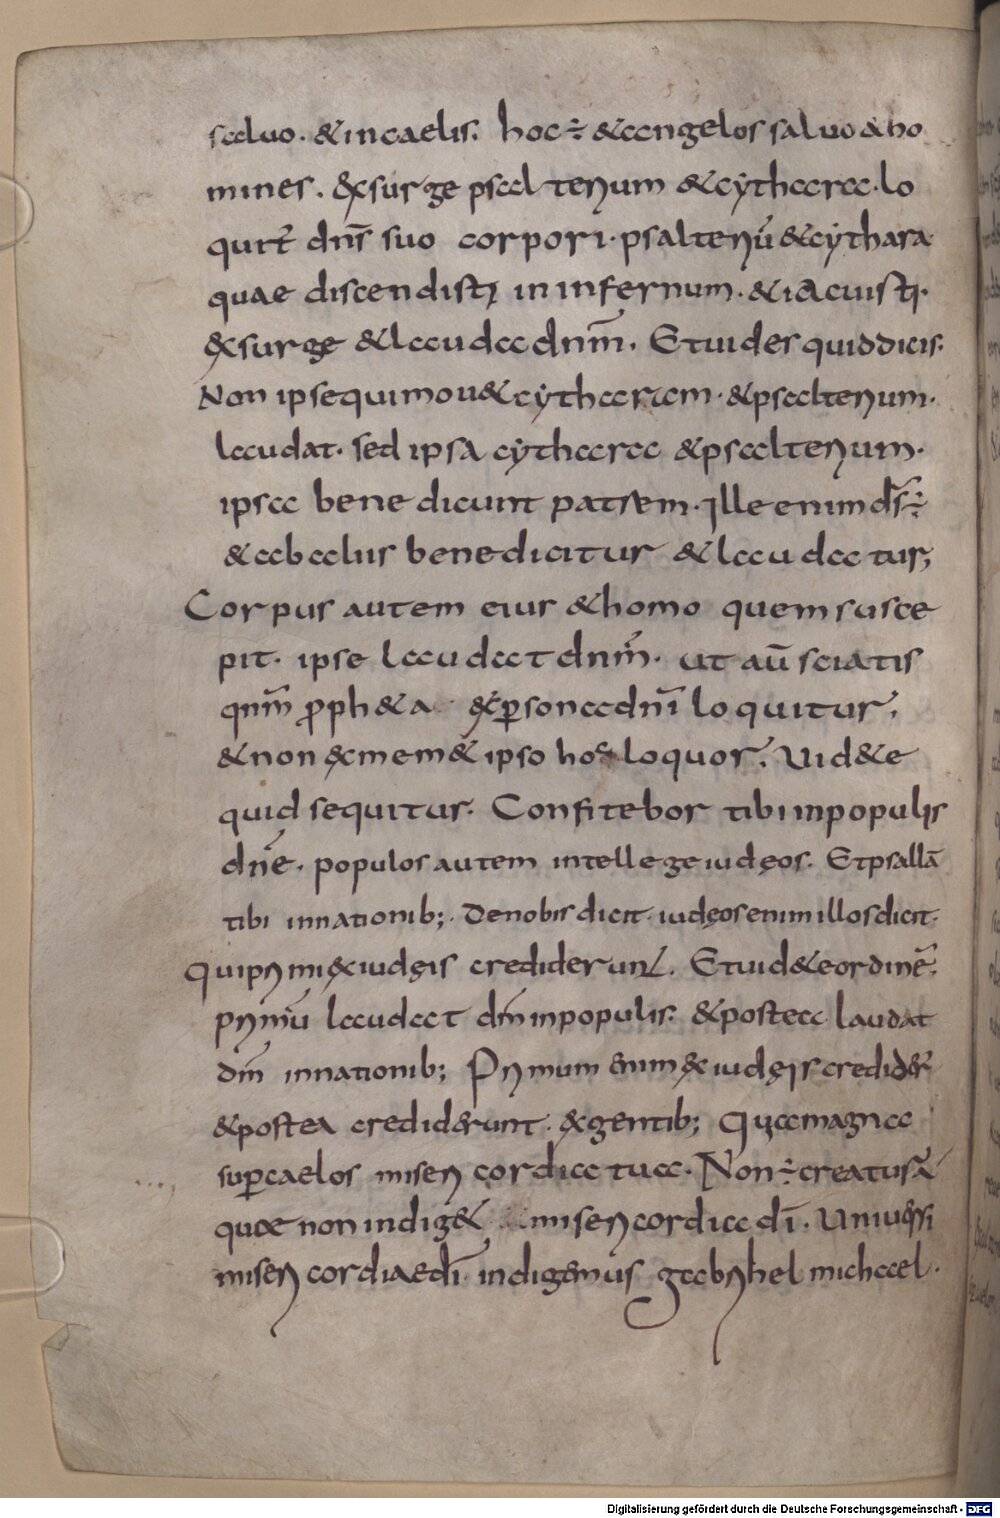 saluo. & in caelis. hoc ÷ & angelos saluo & ho
mines. exsurge psalterium & cythara. lo
quit̄ dn̄s suo corpori. psalteriū & cythara
quae discendisti in infernum. & iacuisti.
exsurge & lauda dnm̄. Et uides quid dicis.
Non ipse qui mou& cytharam. & psalterium.
laudat. sed ipsa cythara & psalterium.
ipsa benedicunt patrem. Ille enim ds̄ ÷
& ab aliis benedicitur & laudatur;
Corpus autem eius & homo quem susce
pit. ipse laudat dnm̄. ut aū sciatis
qnm̄ proph&a ex persona dnī loquitur.
& non ex mem& ipso hoc loquor. Uid&e
quid sequitur. Confitebor tibi in populis
dnē. populos autem intellege iudęos. Et psallā
tibi in nationib; de nobis dicit. iudęos enim illos dicit.
Qui primi ex iudęis crediderunt. Et uid&e ordinē.
primū laudat dm̄ in populis. & postea laudat
dm̄ in nationib; Primum enim ex iudęis credider̄
& postea crediderunt. ex gentib; Quia magna
super caelos misericordia tua. Non ÷ creaturā
quae non indig& misericordia dī. Uniuersi
misericordiae dī indigemus gabrihel michael.
Digitalisierung gefördert durch die Deutsche Forschungsgemeinschaft - DFG